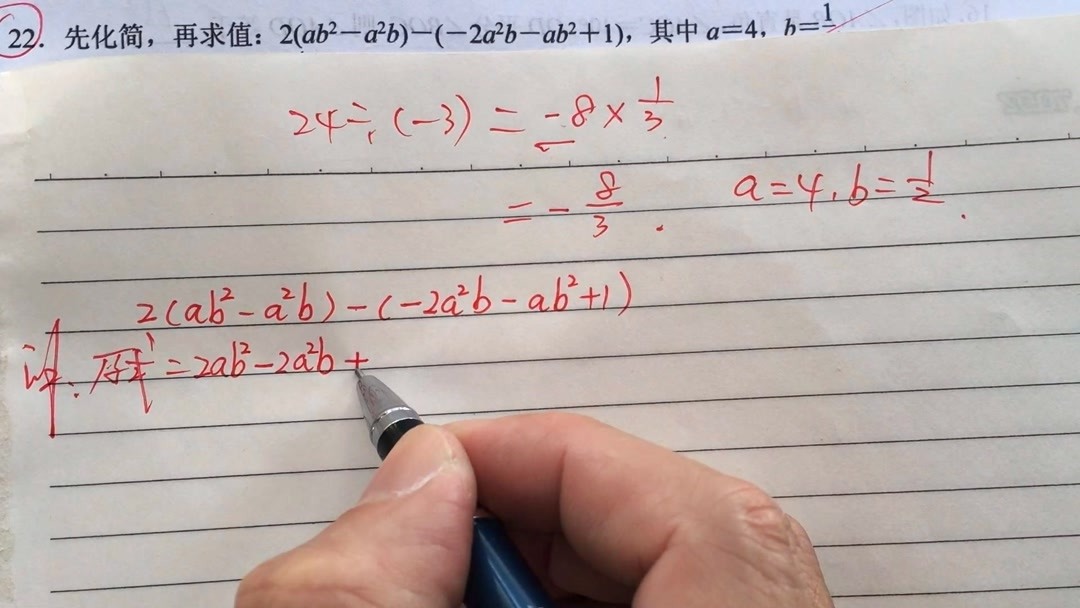 22. 先化简，再求值：2(ab²－a²b)－(－2a²b－ab²＋1)，其中 a＝4，b＝1
24÷(-3) = -8 × 1/3
= - 8/3 . a=4, b=1/2 .
2(ab²-a²b)-(-2a²b-ab²+1)
解: 原式 = 2ab²-2a²b+